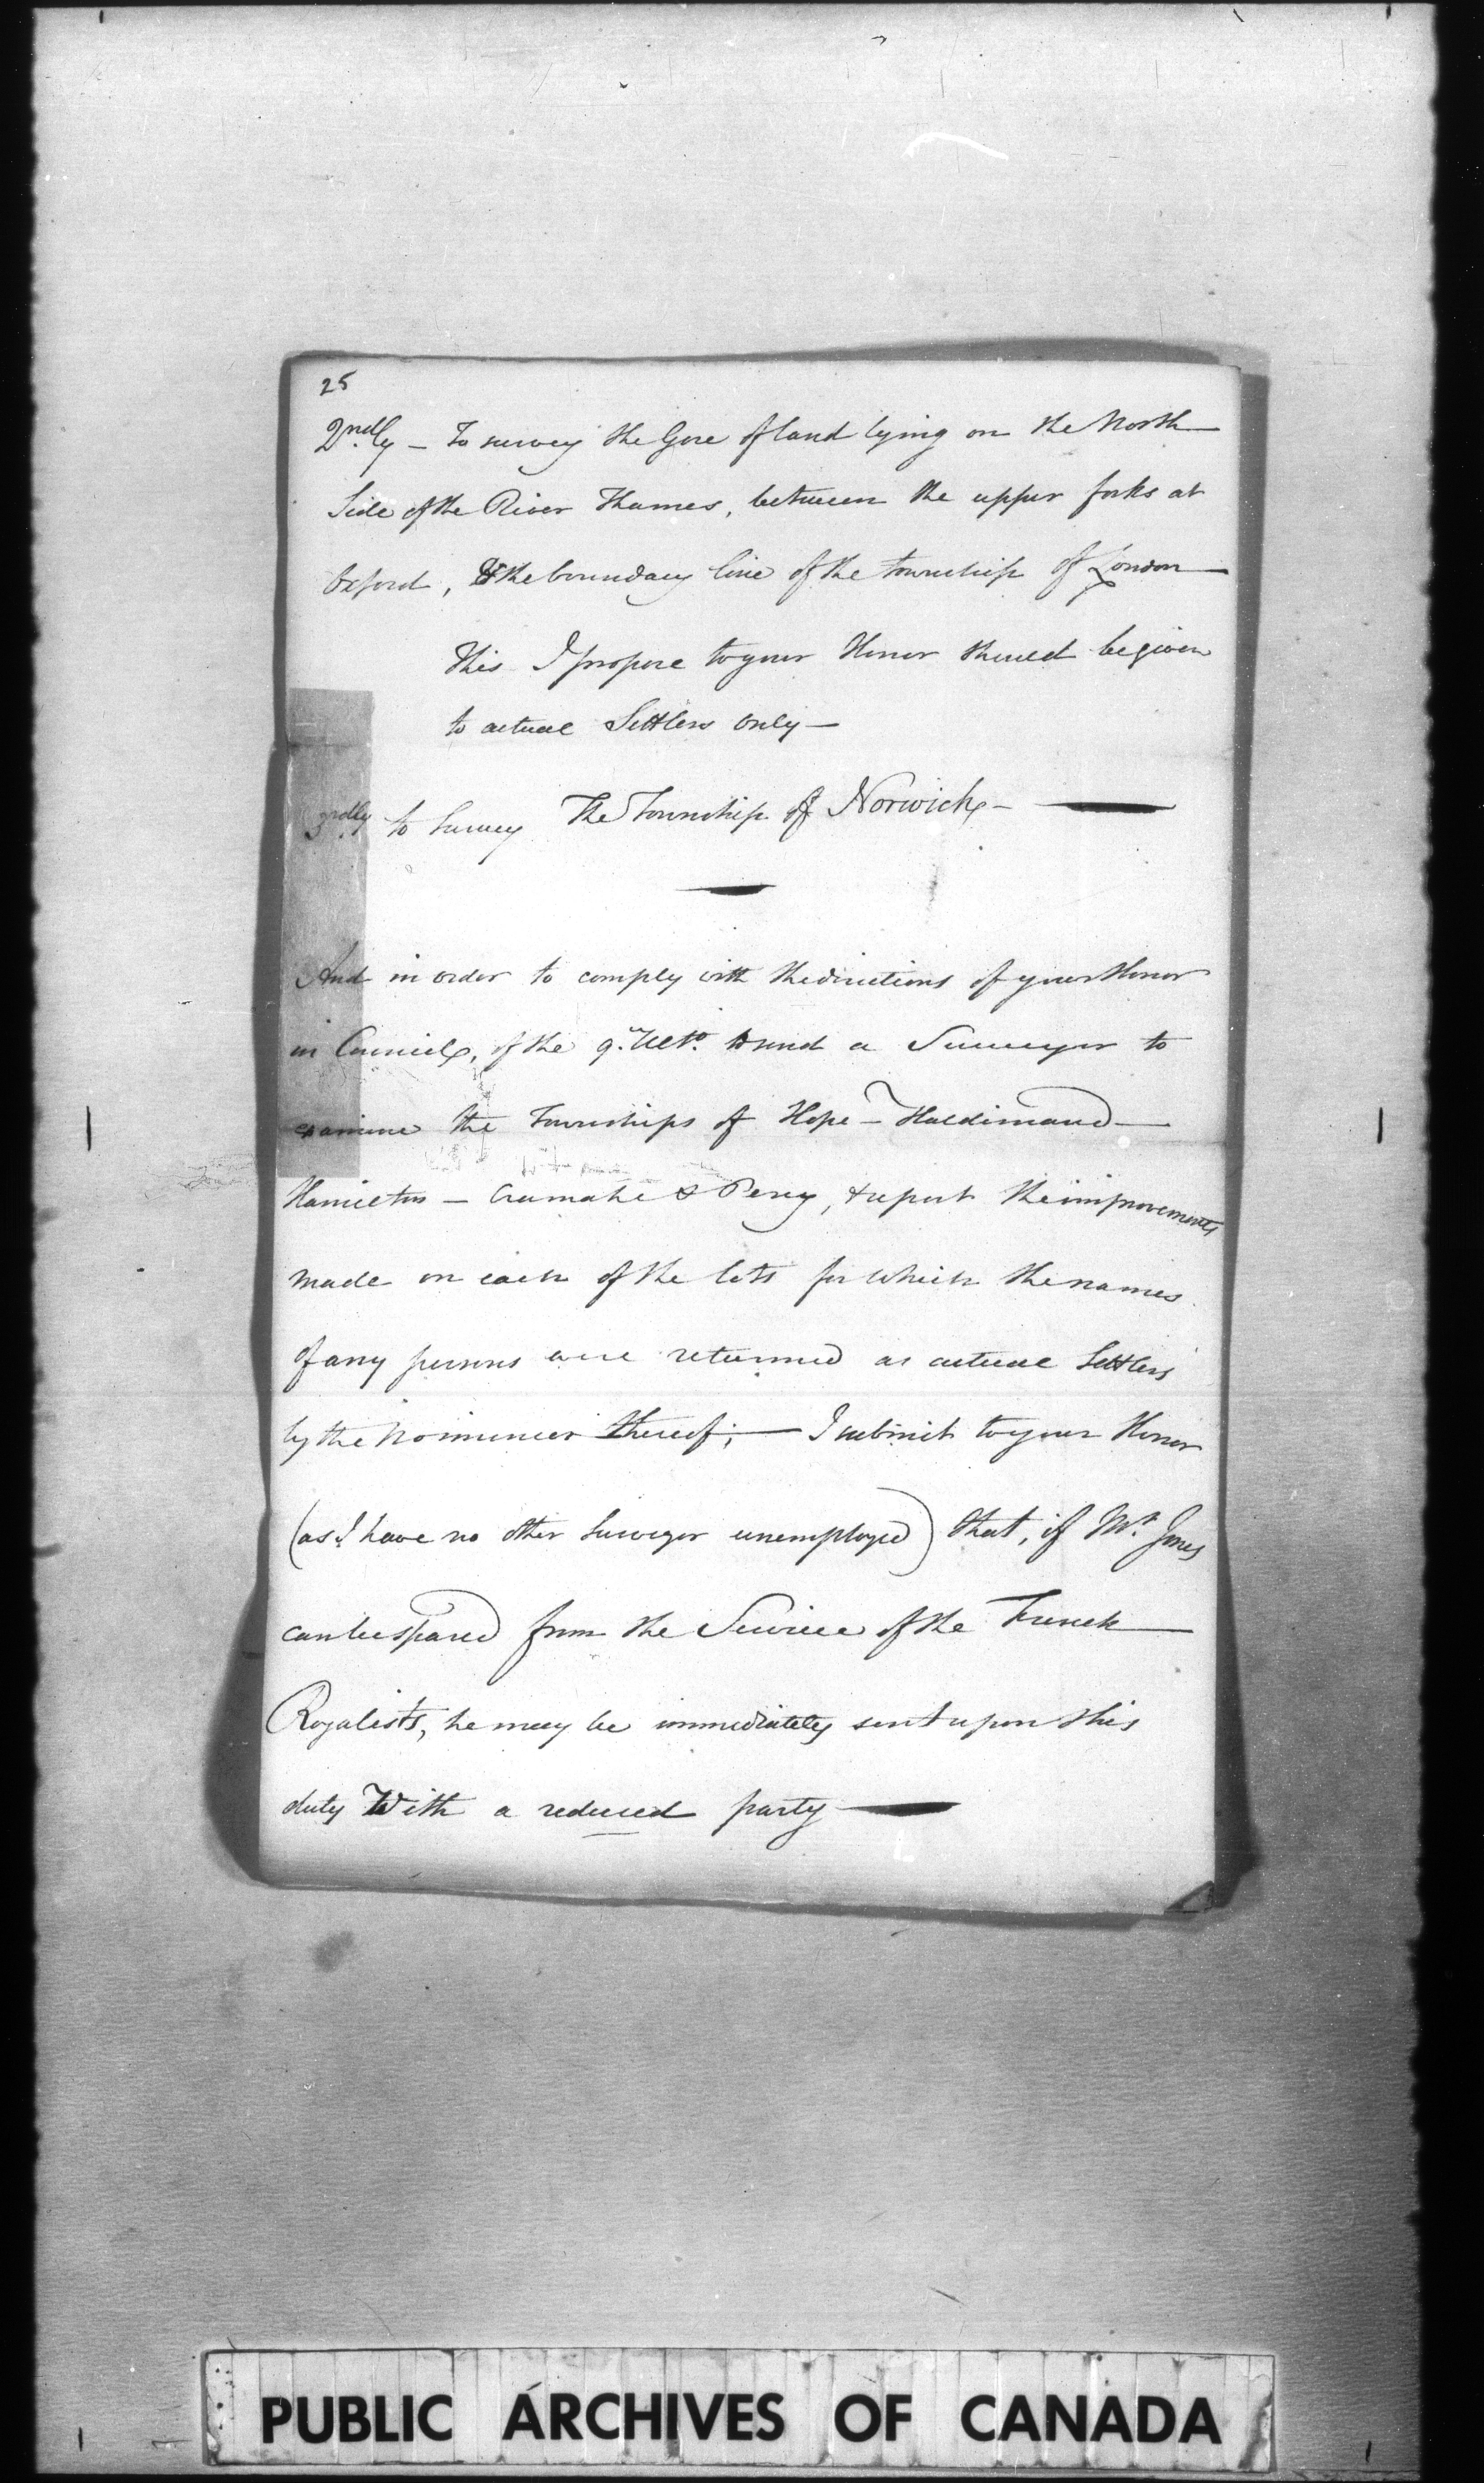 25
2ndly - To survey the Gore of land lying on the North
Side of the River Thames, between the upper forks at
Oxford, & the boundary line of the township of London
This I propose to your Honor should be given
to actual Settlers only -
3rdly to Survey The Township of Norwich -
And in order to comply with the directions of your Honor
in Council, of the 9th Ulto. to send a Surveyor to
examine the Townships of Hope - Haldimand -
Hamilton - Cramahe & Percy, & report the improvements
made on each of the lots for which the names
of any persons were returned as actual Settlers
by the Nominees thereof; - I submit to your Honor
(as I have no other Surveyor unemployed) that, if Mr. Jones
can be spared from the Service of the French
Royalists, he may be immediately sent upon this
duty With a reduced party -
PUBLIC ARCHIVES OF CANADA